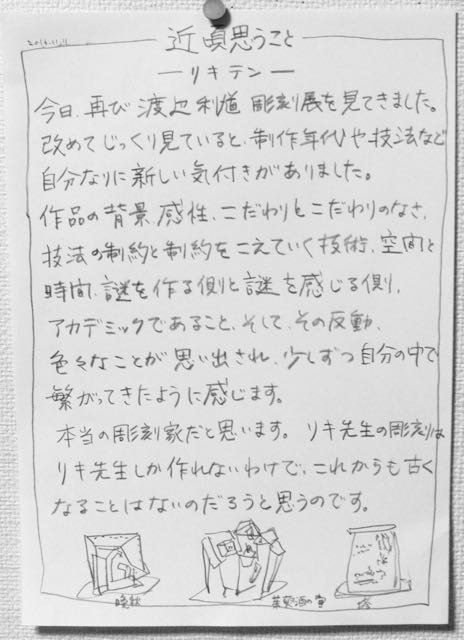 2014.11.11
近頃思うこと
—リキテン—
今日、再び渡辺利道 彫刻展を見てきました。
改めてじっくり見ていると、制作年代や技法など
自分なりに新しい気付きがありました。
作品の背景、感性、こだわりとこだわりのなさ、
技法の制約と制約をこえていく技術、空間と
時間、謎を作る側と謎を感じる側、
アカデミックであること、そして、その反動、
色々なことが思い出され、少しずつ自分の中で
繋がってきたように感じます。
本当の彫刻家だと思います。リキ先生の彫刻は
リキ先生しか作れないわけで、これからも古く
なることはないのだろうと思うのです。
晩秋
茱萸酒の宴